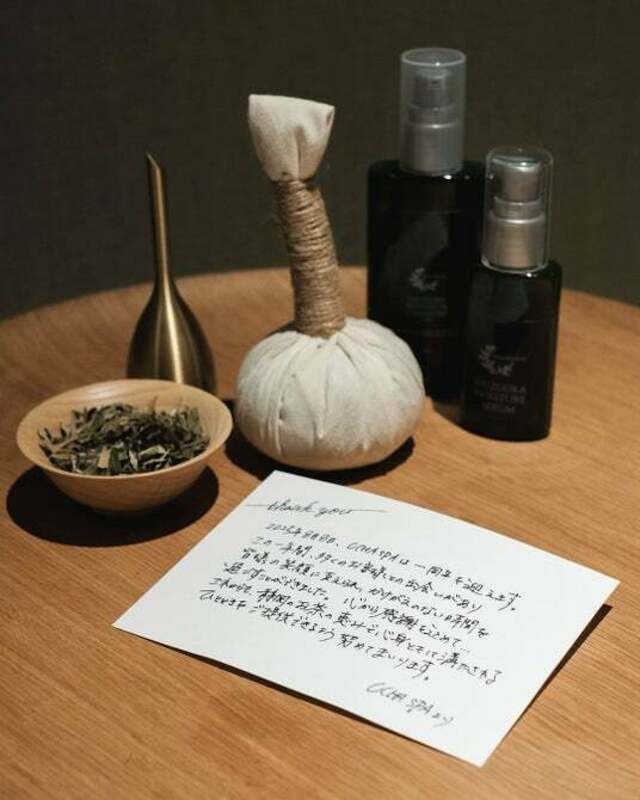 SHIZUOKA
MOISTURE
SERUM
thank you
2025年8月8日、OCHA SPAは一周年を迎えます。
この一年間、多くのお客様との出会いがあり
皆様の笑顔に支えられ、かけがえのない時間を
過ごすことができました。心から感謝をこめて…
これからも、静岡のお茶の恵みで、心身ともに満たされる
ひとときをご提供できるよう努めてまいります。
OCHA SPAより